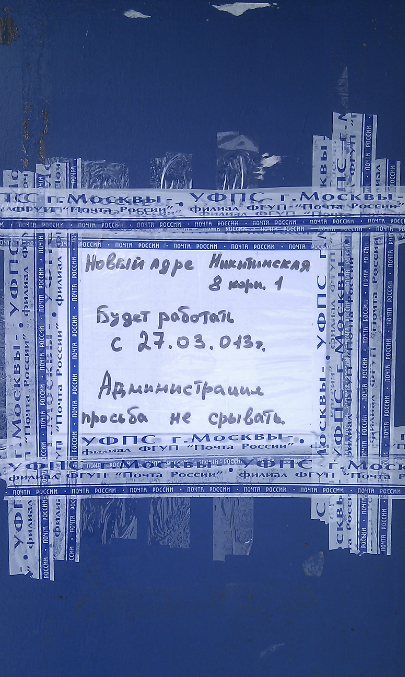 УФПС г.Москвы-, УФПС г.Москвы-
филиал ФГУП "Почта России"
ПОЧТА РОССИИ · ПОЧТА РОССИИ · ПОЧТА РОССИИ
Новый адре Никитинская
8 корп. 1
Будет работать
с 27.03.013г.
Администрация
просьба не срывать.
УФПС г.Москвы-,
филиал ФГУП "Почта России"
УФПС г.Москвы- УФПС г.Москвы-
филиал ФГУП "Почта России"
ПОЧТА РОССИИ · ПОЧТА РОССИИ · ПОЧТА РОССИИ